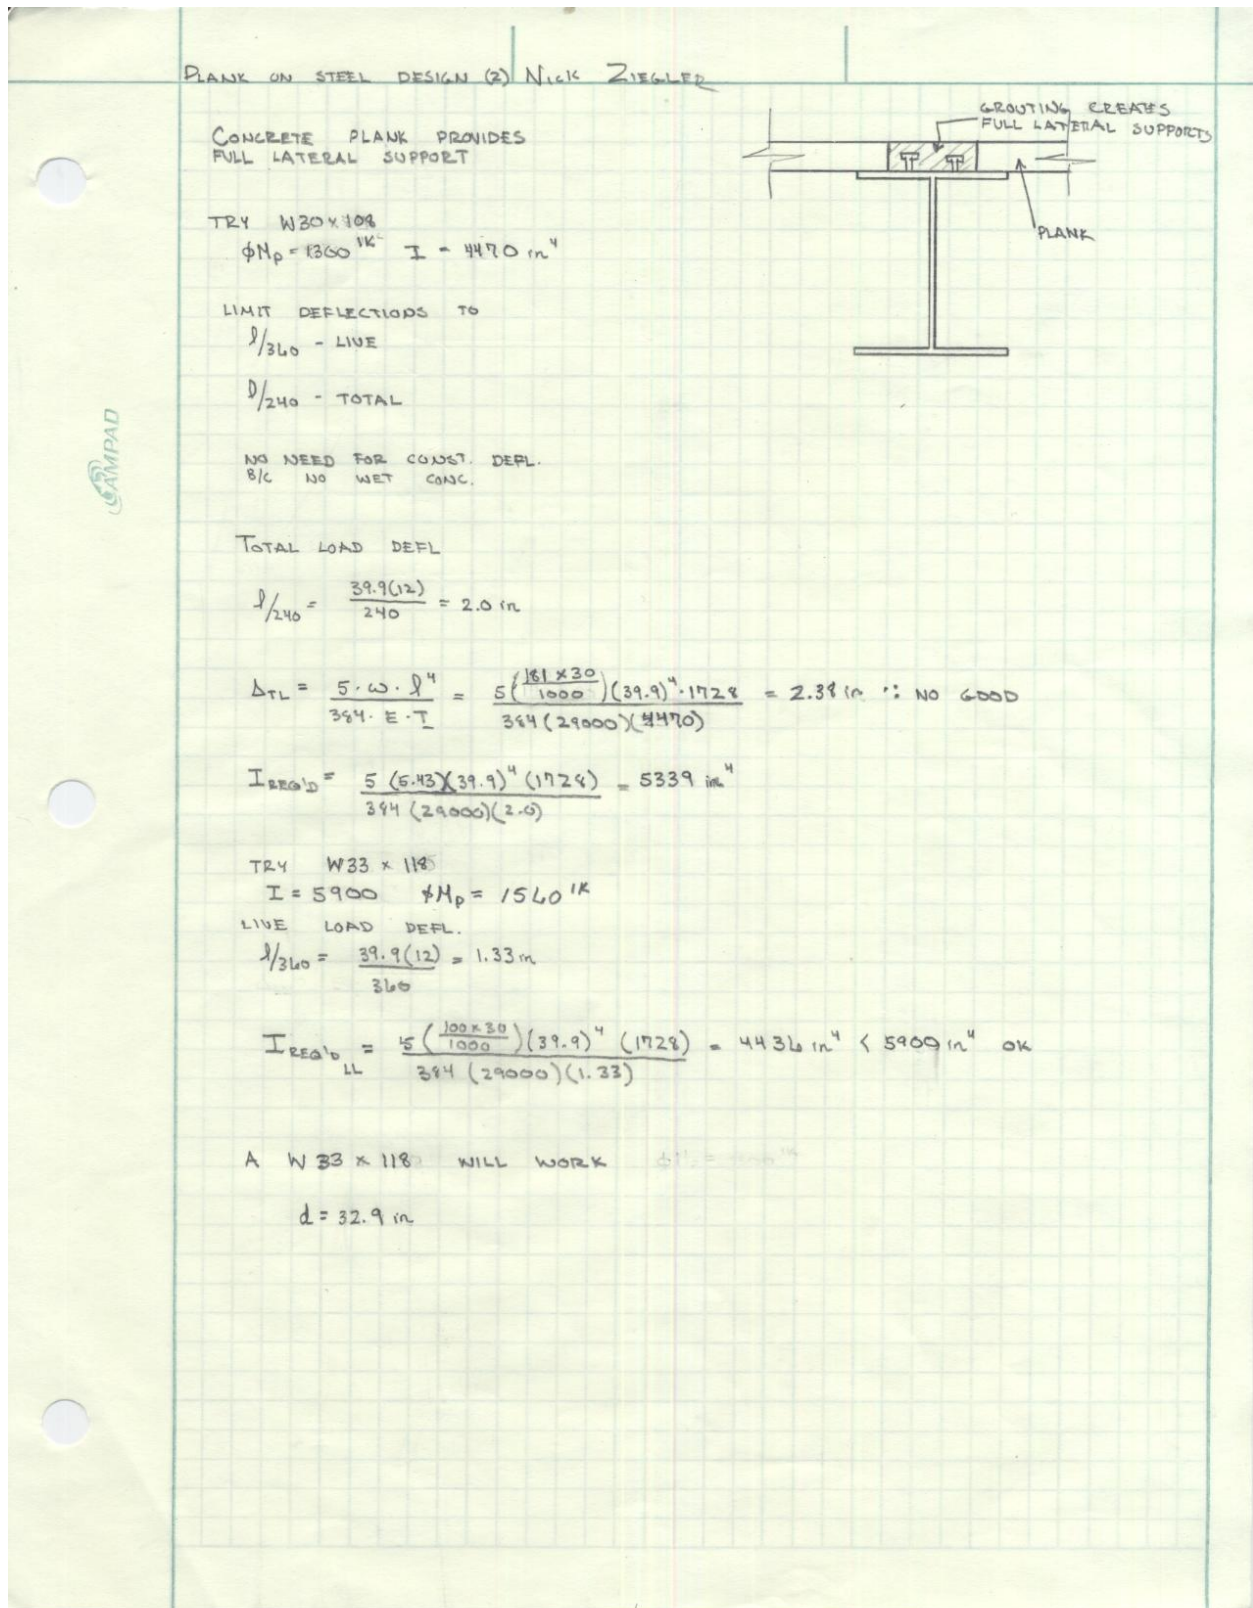 PLANK ON STEEL DESIGN (2) NICK ZIEGLER
CONCRETE PLANK PROVIDES
FULL LATERAL SUPPORT
GROUTING CREATES
FULL LATERAL SUPPORTS
PLANK
TRY W30×108
ϕMp = 1360 'K I = 4470 in⁴
LIMIT DEFLECTIONS TO
l/360 - LIVE
l/240 - TOTAL
NO NEED FOR CONST. DEFL.
B/C NO WET CONC.
TOTAL LOAD DEFL
l/240 = 39.9(12) / 240 = 2.0 in
ΔTL = 5·ω·l⁴ / 384·E·I = 5(181×30/1000)(39.9)⁴·1728 / 384(29000)(4470) = 2.38 in ∴ NO GOOD
I REQ'D = 5 (5.43)(39.9)⁴ (1728) / 384 (29000)(2.0) = 5339 in⁴
TRY W33 × 118
I = 5900 ϕMp = 1560 'K
LIVE LOAD DEFL.
l/360 = 39.9(12) / 360 = 1.33 in
I REQ'D LL = 5 (100×30/1000)(39.9)⁴ (1728) / 384 (29000)(1.33) = 4436 in⁴ < 5900 in⁴ OK
A W33 × 118 WILL WORK
d = 32.9 in
AMPAD